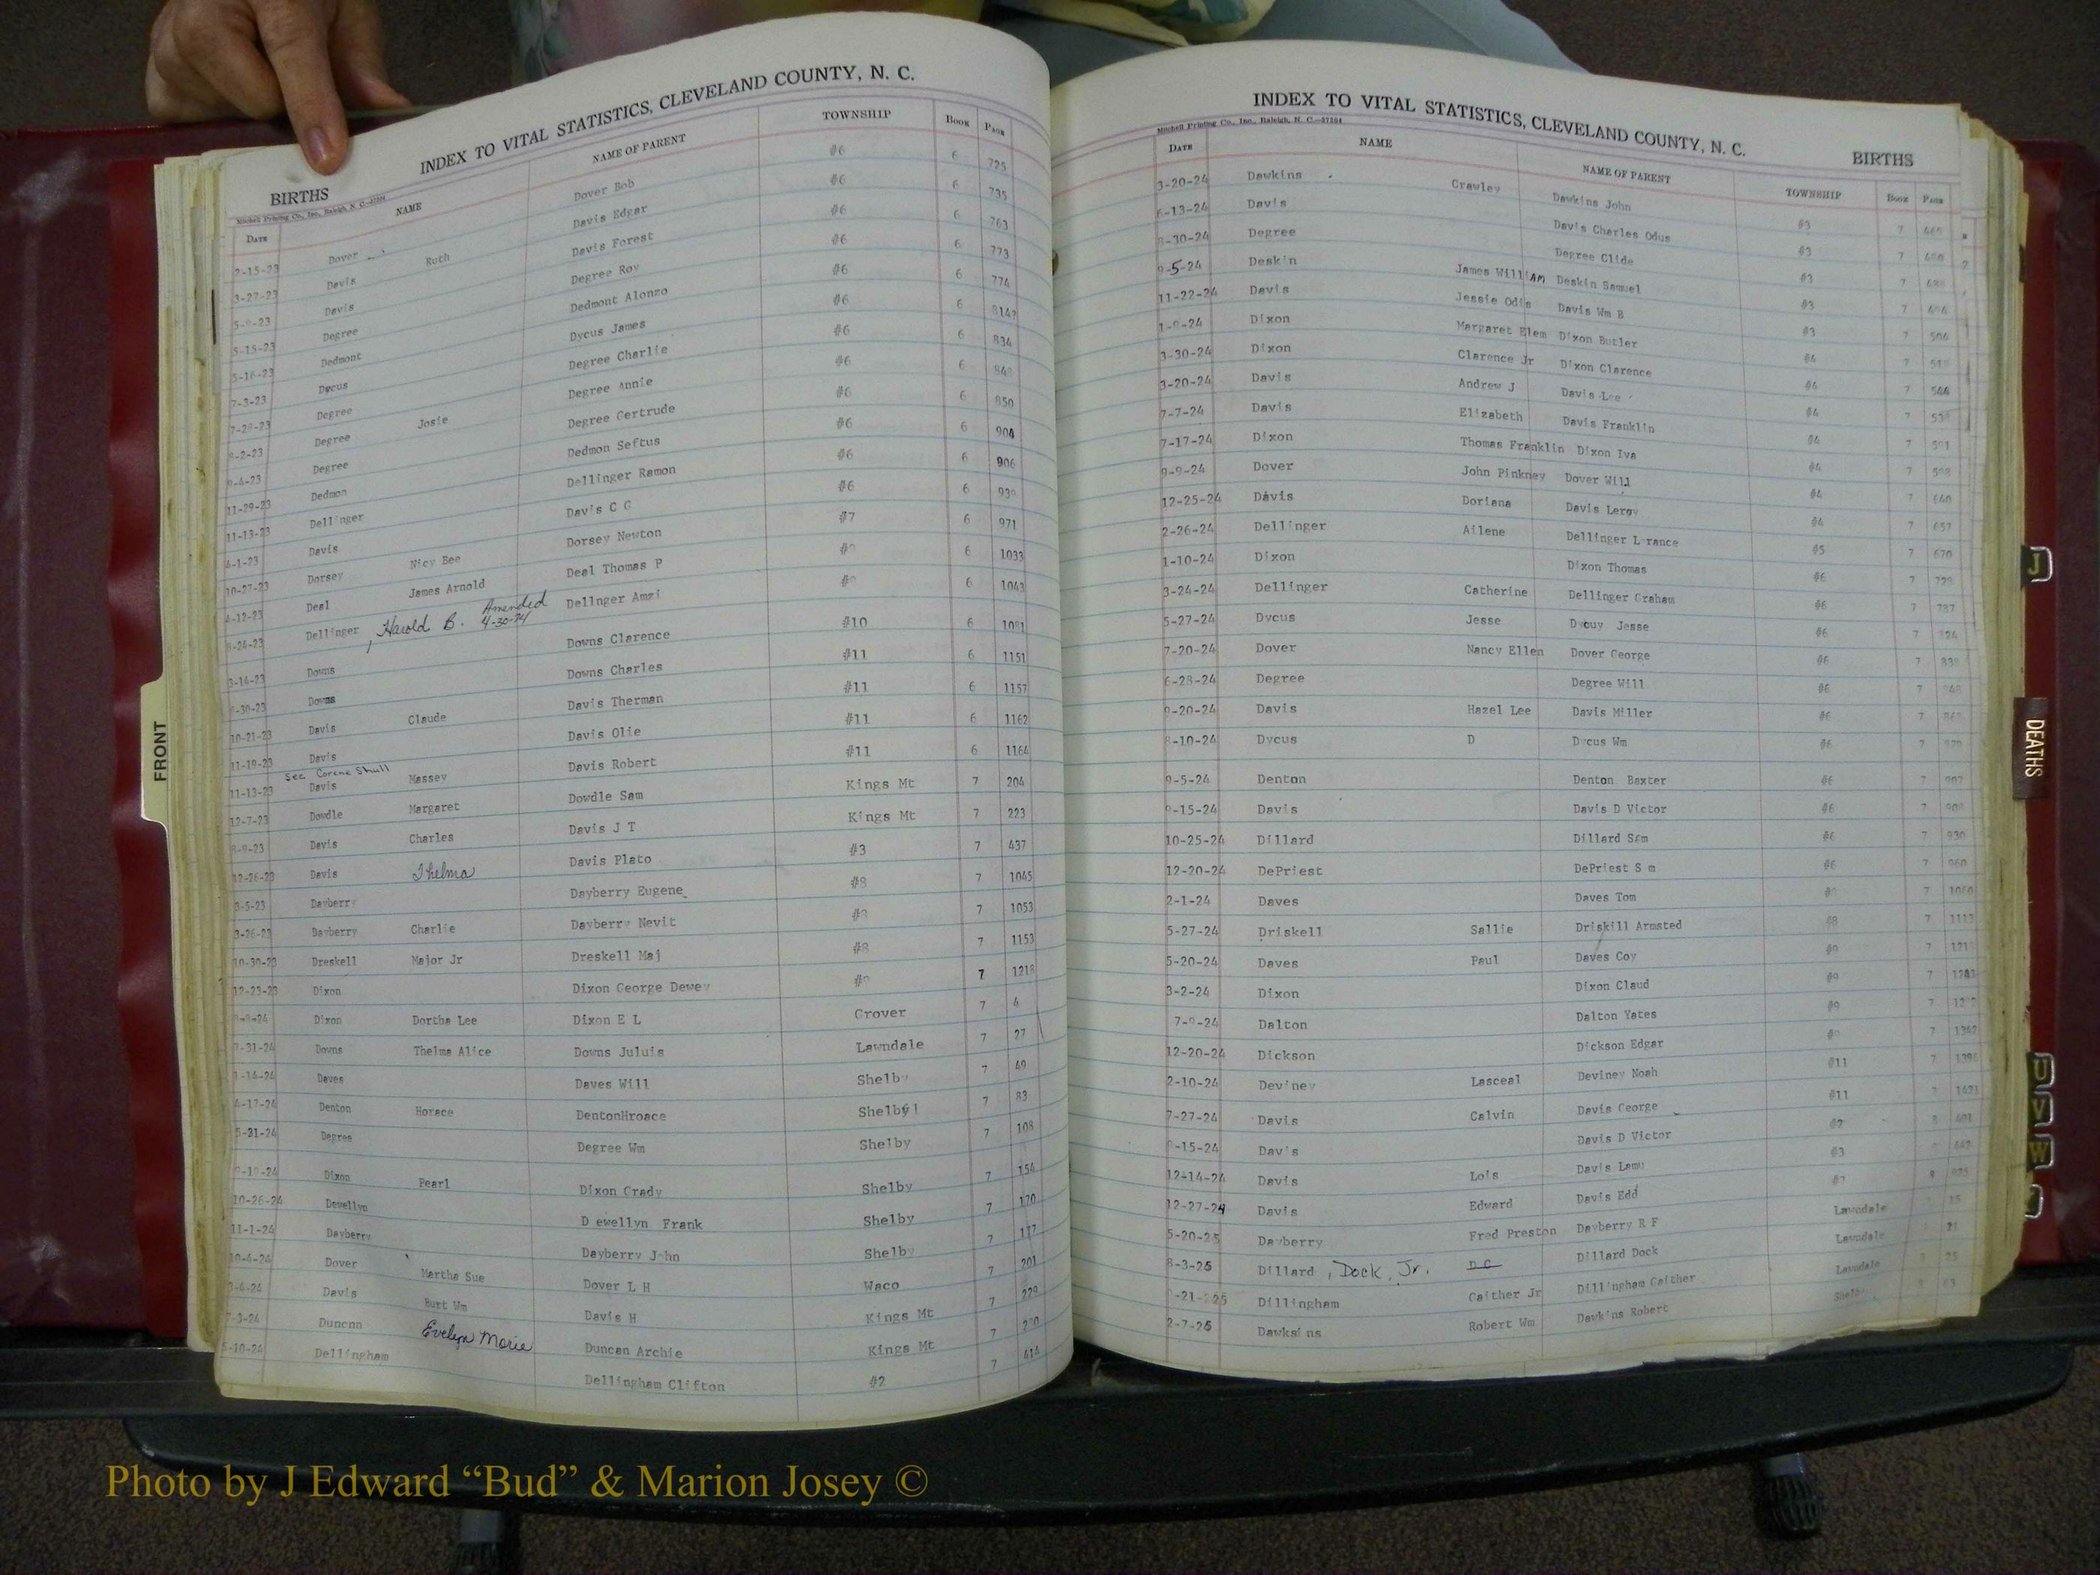 BIRTHS INDEX TO VITAL STATISTICS, CLEVELAND COUNTY, N. C.
Mitchell Printing Co., Inc., Raleigh, N. C.—27204
DATE NAME NAME OF PARENT TOWNSHIP BOOK PAGE
2-15-23 Dover Ruth Dover Bob #6 6 725
3-27-23 Davis Davis Edgar #6 6 735
5-9-23 Davis Davis Forest #6 6 763
5-15-23 Degree Degree Roy #6 6 773
5-16-23 Dedmont Dedmont Alonzo #6 6 774
7-3-23 Dycus Dycus James #6 6
7-28-23 Degree Degree Charlie #6 6 834
8-2-23 Degree Josie Degree Annie #6 6
9-4-23 Degree Degree Gertrude #6 6 850
11-29-23 Dedmon Dedmon Seftus #6 6 904
11-13-23 Dellinger Dellinger Ramon #6 6 906
4-1-23 Davis Davis C G #6 6 939
10-27-23 Dorsey Nicy Bee Dorsey Newton #7 6 971
4-12-23 Deal James Arnold Deal Thomas P 6 1033
8-24-23 Dellinger, Harold B. Amended 4-30-74 Dellnger Amzi 6 1043
3-14-23 Downs Downs Clarence #10 6 1081
-30-23 Downs Downs Charles #11 6 1151
10-21-23 Davis Claude Davis Therman #11 6 1157
11-19-23 Davis Davis Olie #11 6 1162
See Corene Shull
11-13-23 Davis Massey Davis Robert #11 6 1164
12-7-23 Dowdle Margaret Dowdle Sam Kings Mt 7 204
8-9-23 Davis Charles Davis J T Kings Mt 7 223
12-26-23 Davis Thelma Davis Plato #3 7 437
3-5-23 Dayberry Dayberry Eugene #8 7 1045
3-26-23 Dayberry Charlie Dayberry Nevit #8 7 1053
10-30-23 Dreskell Major Jr Dreskell Maj #8 7 1153
12-23-23 Dixon Dixon George Dewey 7 1218
Dixon Dortha Lee Dixon E L Grover 7 4
7-31-24 Downs Thelma Alice Downs Juluis Lawndale 7 27
-14-24 Daves Daves Will Shelby 7 49
4-17-24 Denton Horace DentonHroace Shelby 7 83
5-21-24 Degree Degree Wm Shelby 7 108
Dixon Pearl Dixon Grady Shelby 7 154
10-26-24 Dewellyn D ewellyn Frank Shelby 7 170
11-1-24 Dayberry Dayberry John Shelby 7 177
10-4-24 Dover Martha Sue Dover L H Waco 7 201
3-4-24 Davis Burt Wm Davis H Kings Mt 7 229
7-3-24 Duncan Evelyn Marie Duncan Archie Kings Mt 7
5-10-24 Dellingham Dellingham Clifton #2 7 414
INDEX TO VITAL STATISTICS, CLEVELAND COUNTY, N. C. BIRTHS
Mitchell Printing Co., Inc., Raleigh, N. C.—27204
DATE NAME NAME OF PARENT TOWNSHIP BOOK PAGE
3-20-24 Dawkins Crawley Dawkins John #3 7
6-13-24 Davis Davis Charles Odus #3 7
8-30-24 Degree Degree Clide #3 7
9-5-24 Deskin James William Deskin Samuel #3 7
11-22-24 Davis Jessie Odis Davis Wm B #3 504
1-9-24 Dixon Margaret Elem Dixon Butler #4 7
3-30-24 Dixon Clarence Jr Dixon Clarence #4 7 544
3-20-24 Davis Andrew J Davis Lee #4 7
7-7-24 Davis Elizabeth Davis Franklin #4 7 591
7-17-24 Dixon Thomas Franklin Dixon Iva #4 7 598
9-9-24 Dover John Pinkney Dover Will #4 7 640
12-25-24 Davis Doriana Davis Leroy #4 7 657
2-26-24 Dellinger Ailene Dellinger L rance #5 7 670
1-10-24 Dixon Dixon Thomas #6 7 729
3-24-24 Dellinger Catherine Dellinger Graham #6 7 787
5-27-24 Dycus Jesse Dycuy Jesse #6 7 824
7-20-24 Dover Nancy Ellen Dover George #6 7
6-28-24 Degree Degree Will #6 7 848
9-20-24 Davis Hazel Lee Davis Miller #6 7
8-10-24 Dycus D Dycus Wm #6 7
9-5-24 Denton Denton Baxter #6 7 907
9-15-24 Davis Davis D Victor #6 7 908
10-25-24 Dillard Dillard Sam #6 7 930
12-20-24 DePriest DePriest S m #6 7 960
2-1-24 Daves Daves Tom 7 1060
5-27-24 Driskell Sallie Driskill Armsted #8 7 1113
5-20-24 Daves Paul Daves Coy #9 7
3-2-24 Dixon Dixon Claud #9 7 1283
7-9-24 Dalton Dalton Yates #9 7
12-20-24 Dickson Dickson Edgar 7 1342
2-10-24 Deviney Lasceal Deviney Noah #11 7
7-27-24 Davis Calvin Davis George #11 1421
-15-24 Davis Davis D Victor #2
12-14-24 Davis Lois Davis Lamu #3
12-27-24 Davis Edward Davis Edd
5-20-25 Dayberry Fred Preston Dayberry R F Lawndale 15
8-3-25 Dillard, Dock, Jr. D C Dillard Dock Lawndale 21
-21-25 Dillingham Gaither Jr Dillingham Gaither Lawndale 25
2-7-25 Dawksins Robert Wm Dawkins Robert Shelby 63
FRONT
J
DEATHS
U
V
W
Photo by J Edward “Bud” & Marion Josey ©